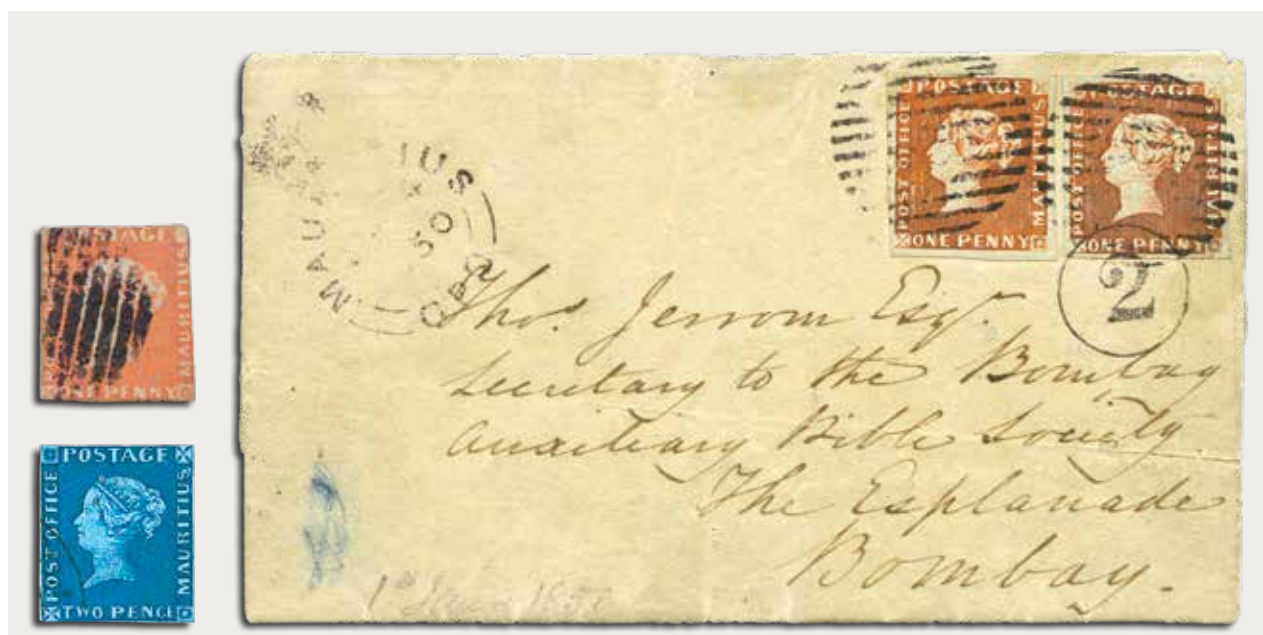 POSTAGE
MAURITIUS
ONE PENNY
POSTAGE
POST OFFICE
MAURITIUS
TWO PENCE
MAU IUS
50
GPO
POSTAGE
POST OFFICE
MAURITIUS
ONE PENNY
POSTAGE
POST OFFICE
MAURITIUS
ONE PENNY
2
Thos. Jerrom Esq.
Secretary to the Bombay
Auxiliary Bible Society
The Esplanade
Bombay.